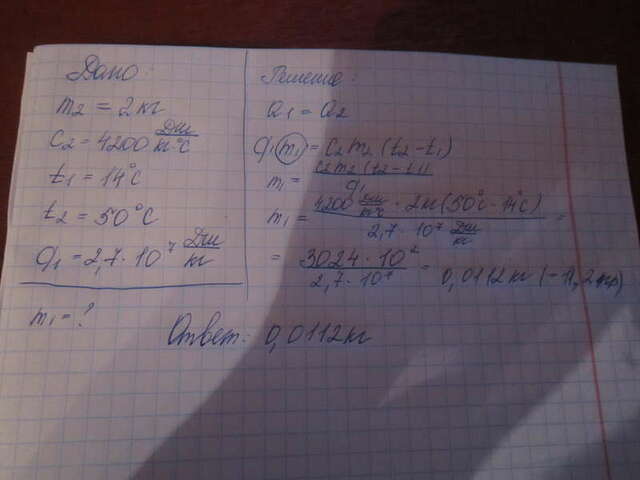 Дано:
m₂ = 2 кг
c₂ = 4200 Дж/кг·°C
t₁ = 14°C
t₂ = 50°C
q₁ = 2,7 · 10⁷ Дж/кг
m₁ = ?
Решение:
Q₁ = Q₂
q₁m₁ = c₂m₂(t₂-t₁)
m₁ = c₂m₂(t₂-t₁)/q₁
m₁ = 4200 Дж/кг°C · 2кг(50°C-14°C)/2,7 · 10⁷ Дж/кг =
= 3024 · 10²/2,7 · 10⁷ = 0,0112 кг (=11,2 гр)
Ответ: 0,0112 кг